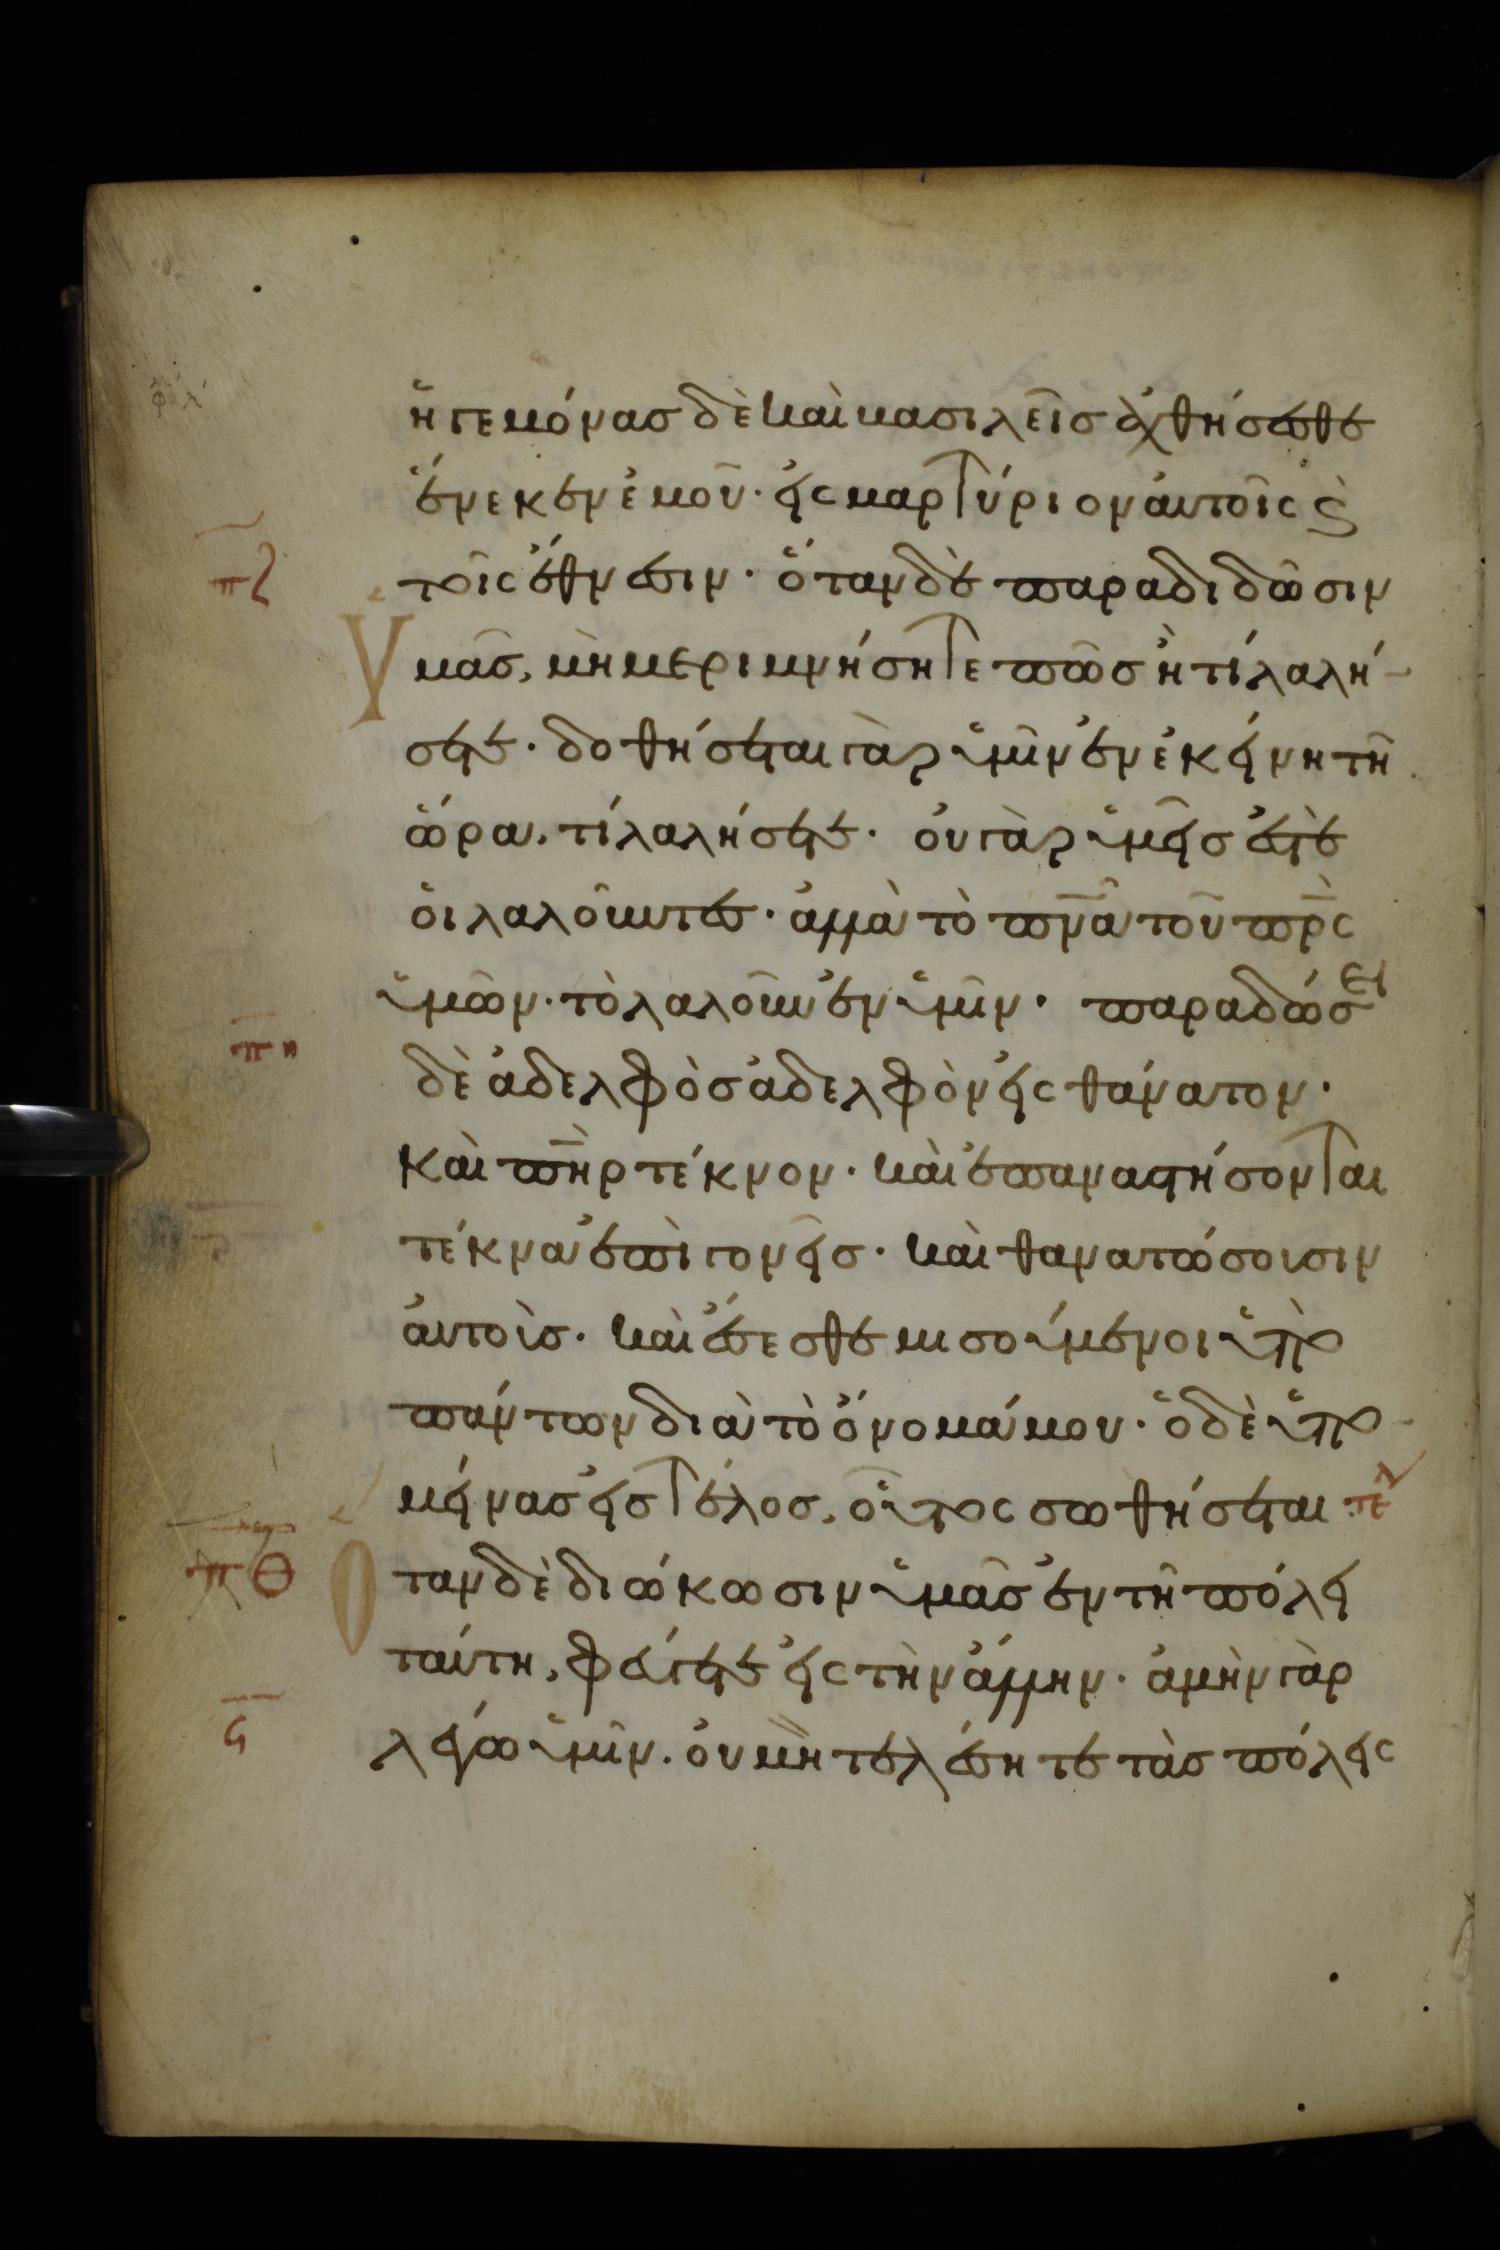 ἡγεμόνας δὲ καὶ βασιλεῖς ἀχθήσεσθε
ἕνεκεν ἐμοῦ· εἰς μαρτύριον αὐτοῖς ϗ
πζ
τοῖς ἔθνεσιν· ὅταν δὲ παραδιδῶσιν
Ὑμᾶς, μὴ μεριμνήσητε πῶς ἢ τί λαλή
σετε· δοθήσεται γὰρ ὑμῖν ἐν ἐκείνη τῆ
ὥρα, τί λαλήσετε· οὐ γὰρ ὑμεῖς ἐστὲ
οἱ λαλοῦντες· ἀλλὰ τὸ πν̅α τοῦ πρ̅ς
ὑμῶν· τὸ λαλοῦν ἐν ὑμῖν· παραδώσει
πη
δὲ ἀδελφὸς ἀδελφὸν εἰς θάνατον·
καὶ πη̅ρ τέκνον· καὶ ἐπαναστήσονται
τέκνα ἐπὶ γονεῖς· καὶ θανατώσουσιν
αὐτοὺς· καὶ ἔσεσθε μισούμενοι ὑπὸ
πάντων διὰ τὸ ὄνομά μου· ὁ δὲ ὑπο
μείνας εἰς τέλος, οὗτος σωθήσεται τελ
πθ
Ὅταν δὲ διώκωσιν ὑμᾶς ἐν τῆ πόλει
ταύτη, φεύγετε εἰς τὴν ἄλλην· ἀμὴν γὰρ
ϛ
λέγω ὑμῖν· οὐ μὴ τελέσητε τὰς πόλεις